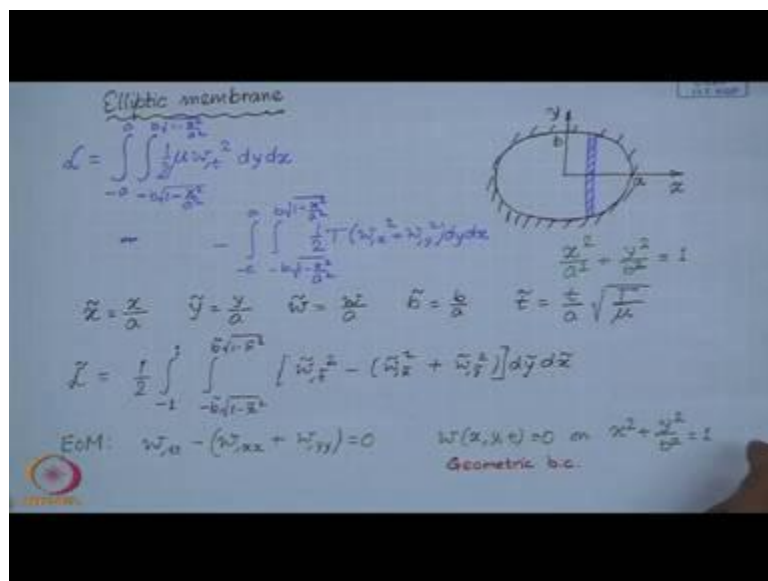 Elliptic membrane
ℒ = ∫_{-a}^{a} ∫_{-b√(1-x²/a²)}^{b√(1-x²/a²)} ½ μ w,ₜ² dy dx
- - ∫_{-a}^{a} ∫_{-b√(1-x²/a²)}^{b√(1-x²/a²)} ½ T (w,ₓ² + w,ᵧ²) dy dx
y
b
a
x
x²/a² + y²/b² = 1
x̃ = x/a ỹ = y/a w̃ = w/a b̃ = b/a t̃ = t/a √(T/μ)
ℒ̃ = ½ ∫_{-1}^{1} ∫_{-b̃√(1-x̃²)}^{b̃√(1-x̃²)} [w̃,_t̃² - (w̃,_x̃² + w̃,_ỹ²)] dỹ dx̃
EOM: w,ₜₜ - (w,ₓₓ + w,ᵧᵧ) = 0 w(x,y,t) = 0 on x² + y²/b² = 1
Geometric b.c.